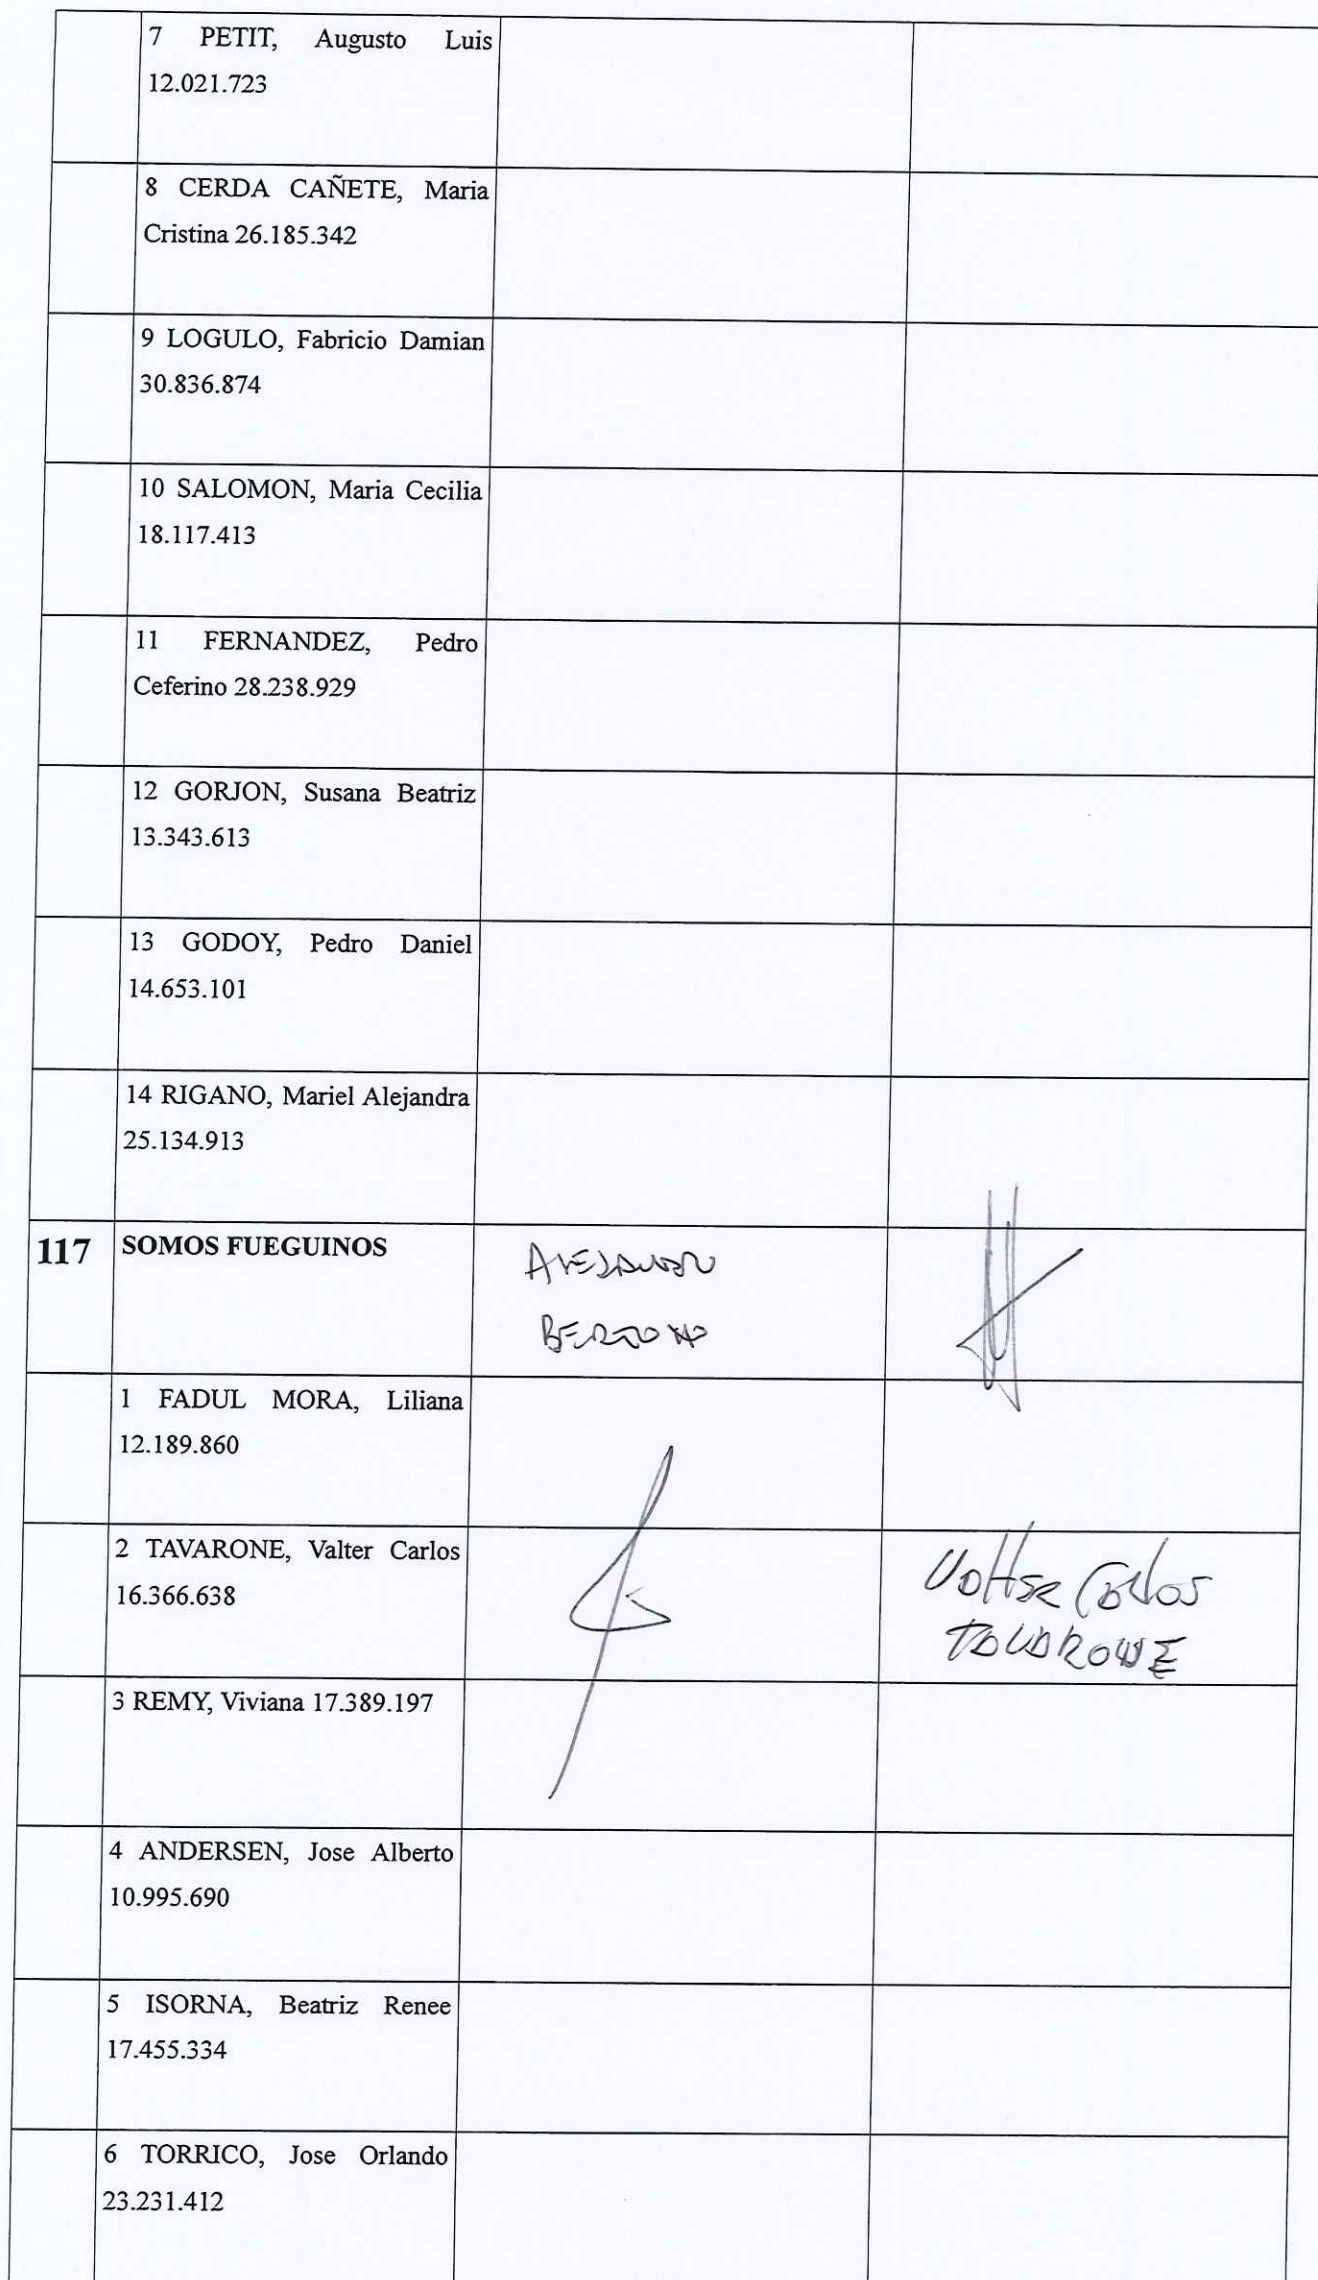 7 PETIT, Augusto Luis
12.021.723
8 CERDA CAÑETE, Maria
Cristina 26.185.342
9 LOGULO, Fabricio Damian
30.836.874
10 SALOMON, Maria Cecilia
18.117.413
11 FERNANDEZ, Pedro
Ceferino 28.238.929
12 GORJON, Susana Beatriz
13.343.613
13 GODOY, Pedro Daniel
14.653.101
14 RIGANO, Mariel Alejandra
25.134.913
117 SOMOS FUEGUINOS
ALEJANDRO
1 FADUL MORA, Liliana
12.189.860
2 TAVARONE, Valter Carlos
16.366.638
Valter Carlos
TAVARONE
3 REMY, Viviana 17.389.197
4 ANDERSEN, Jose Alberto
10.995.690
5 ISORNA, Beatriz Renee
17.455.334
6 TORRICO, Jose Orlando
23.231.412